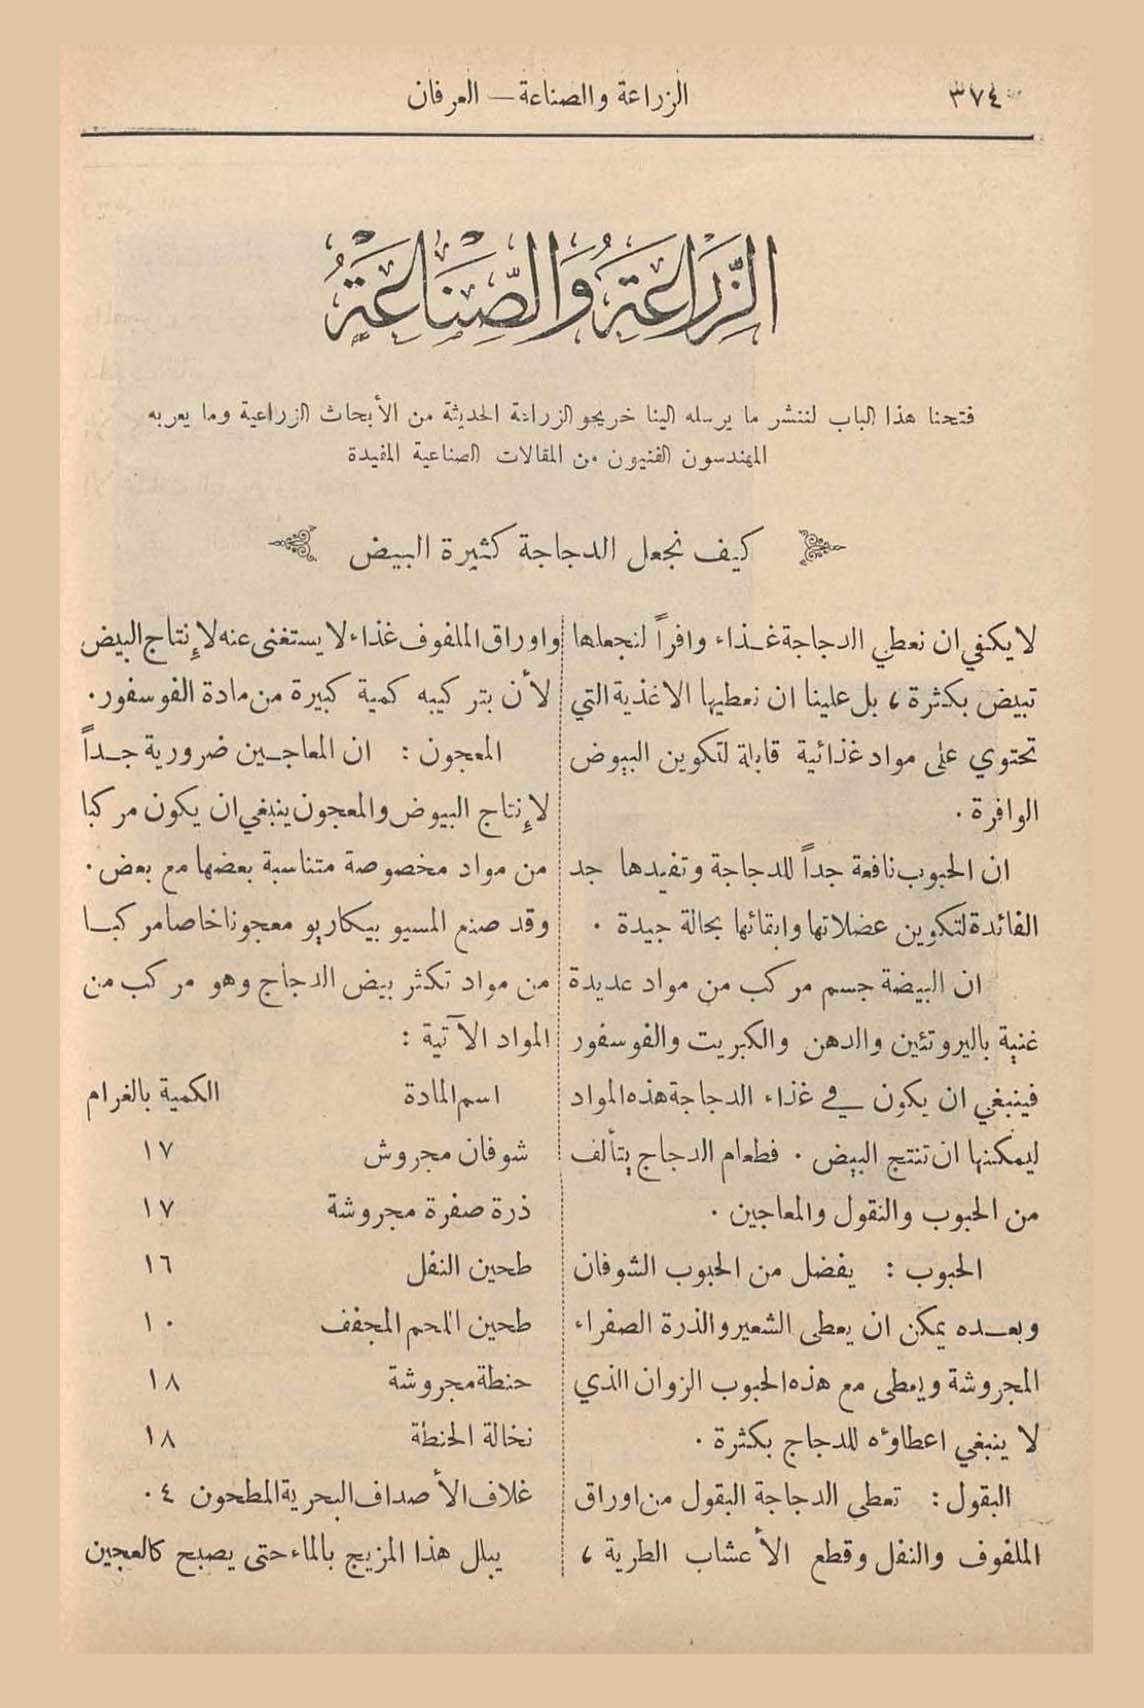 ٣٧٤
الزراعة والصناعة — العرفان
الزِّرَاعَةُ وَالصِّنَاعَةُ
فتحنا هذا الباب لننشر ما يرسله الينا خريجو الزراعة الحديثة من الأبحاث الزراعية وما يعربه
المهندسون الفنيون من المقالات الصناعية المفيدة
كيف نجعل الدجاجة كثيرة البيض
لا يكفي ان نعطي الدجاجة غـذاء وافراً لنجعلها
تبيض بكثرة ، بل علينا ان نعطيها الاغذية التي
تحتوي على مواد غذائية قابلة لتكوين البيوض
الوافرة .
ان الحبوب نافعة جداً للدجاجة وتفيدها جد
الفائدة لتكوين عضلاتها وابقائها بحالة جيدة .
ان البيضة جسم مركب من مواد عديدة
غنية بالبروتئين والدهن والكبريت والفوسفور
فينبغي ان يكون في غذاء الدجاجة هذه المواد
ليمكنها ان تنتج البيض . فطعام الدجاج يتألف
من الحبوب والنقول والمعاجين .
الحبوب : يفضل من الحبوب الشوفان
وبعـده يمكن ان يعطى الشعير والذرة الصفراء
المجروشة ويعطى مع هذه الحبوب الزوان الذي
لا ينبغي اعطاوٴه للدجاج بكثرة .
البقول : تعطى الدجاجة البقول من اوراق
الملفوف والنفل وقطع الأعشاب الطرية ،
واوراق الملفوف غذاء لا يستغنى عنه لإنتاج البيض
لأن بتركيبه كمية كبيرة من مادة الفوسفور .
المعجون : ان المعاجـين ضرورية جـداً
لإنتاج البيوض والمعجون ينبغي ان يكون مركبا
من مواد مخصوصة متناسبة بعضها مع بعض .
وقد صنع المسيو بيكاريو معجونا خاصا مركبـا
من مواد تكثر بيض الدجاج وهو مركب من
المواد الآتية :
اسم المادة الكمية بالغرام
شوفان مجروش ١٧
ذرة صفرة مجروشة ١٧
طحين النفل ١٦
طحين اللحم المجفف ١٠
حنطة مجروشة ١٨
نخالة الحنطة ١٨
غلاف الأصداف البحرية المطحون ٤٠
يبلل هذا المزيج بالماء حتى يصبح كالعجين